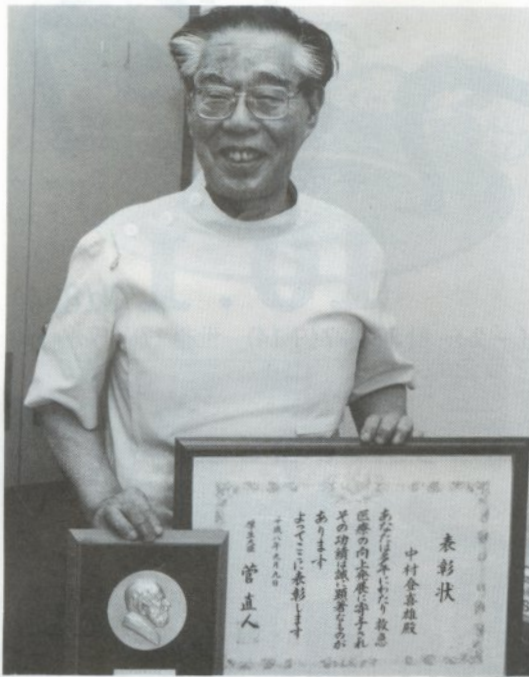 表彰状
中村金喜雄殿
あなたは多年にわたり救急
医療の向上発展に寄与され
その功績は誠に顕著なものが
あります
よってここに表彰します
平成八年九月九日
厚生大臣 菅直人